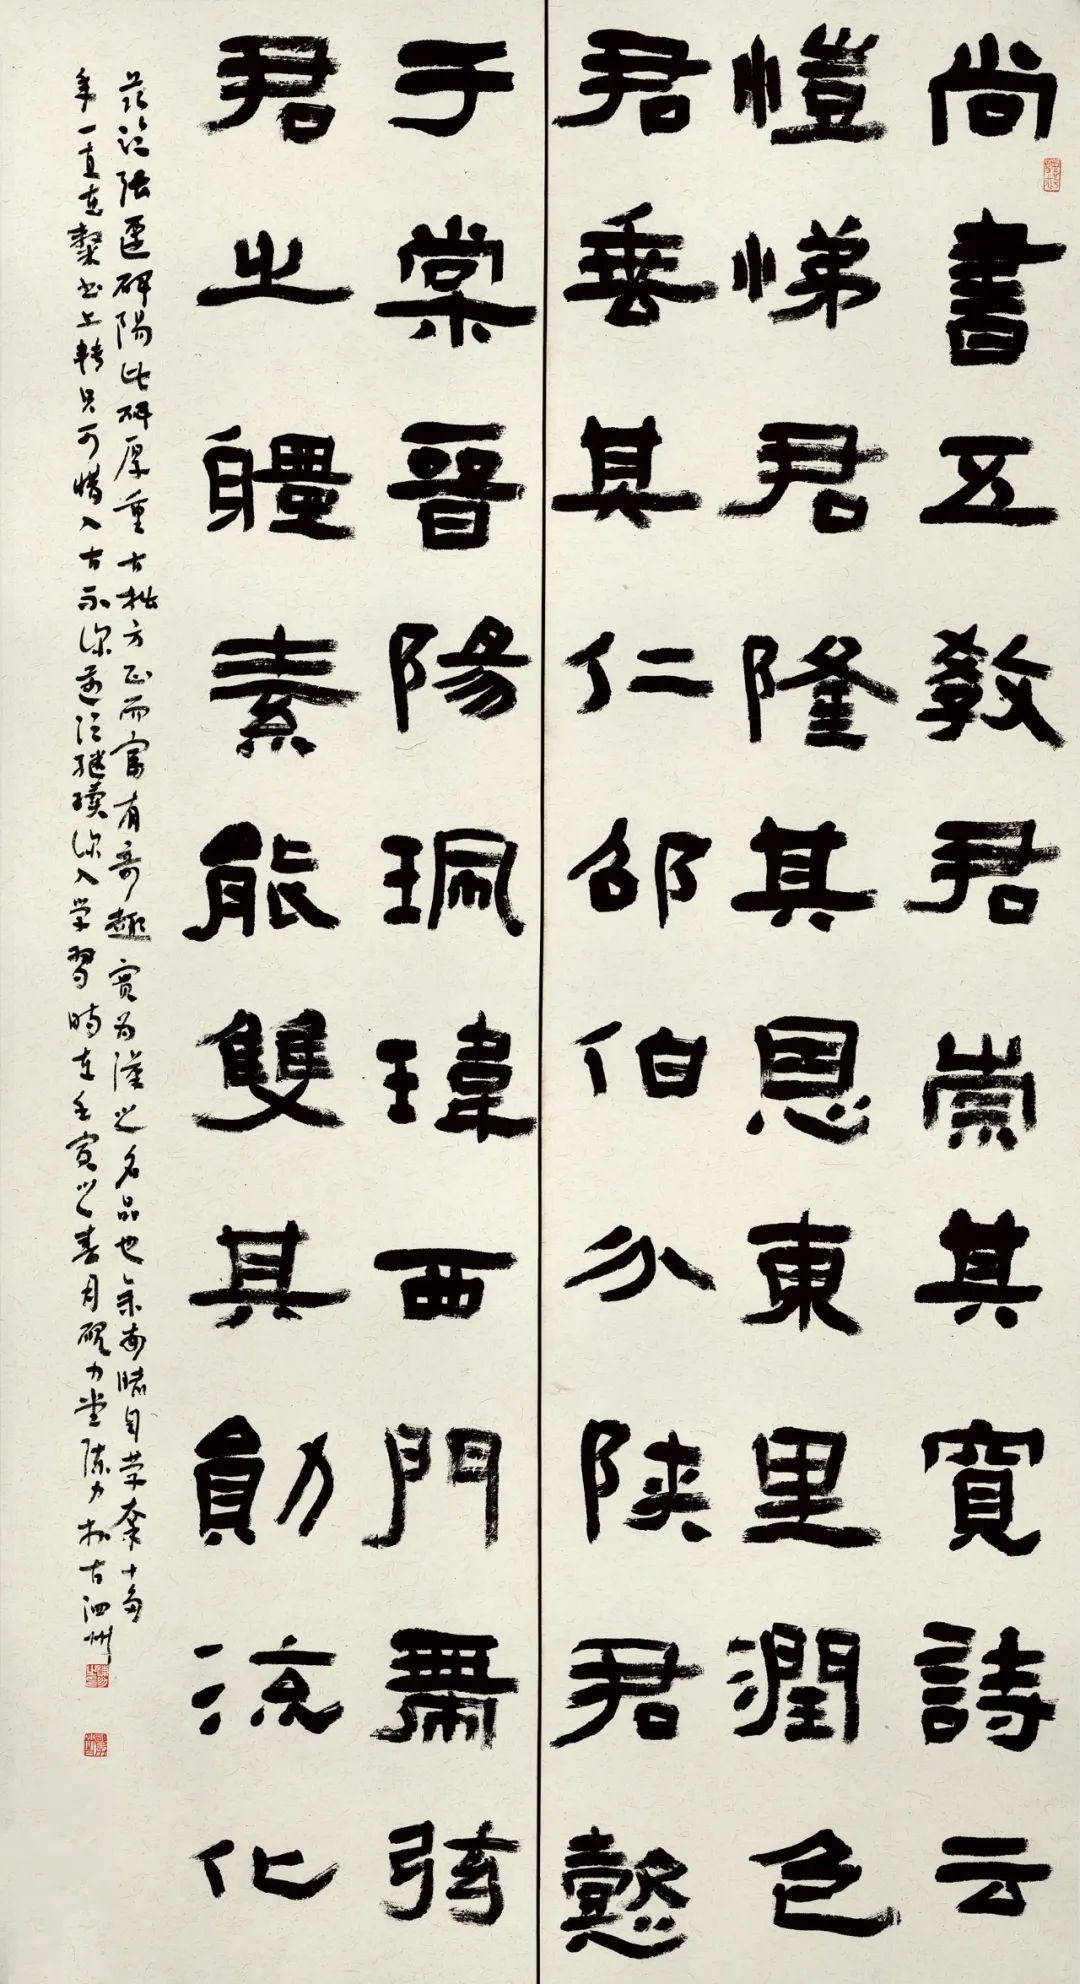 尚書五教君崇其寬詩云
愷悌君隆其恩東里潤色
君垂其仁邵伯分陝君懿
于棠晉陽珮瑋西門帶弦
君之軆素能雙其勛流化
臨張遷碑陽此碑厚重古拙方正而富有奇趣實為漢之名品也余十多
年一直在上轉只可惜入古不深還須繼續深入學習時在壬寅之春月硯力堂陈力於古泗州